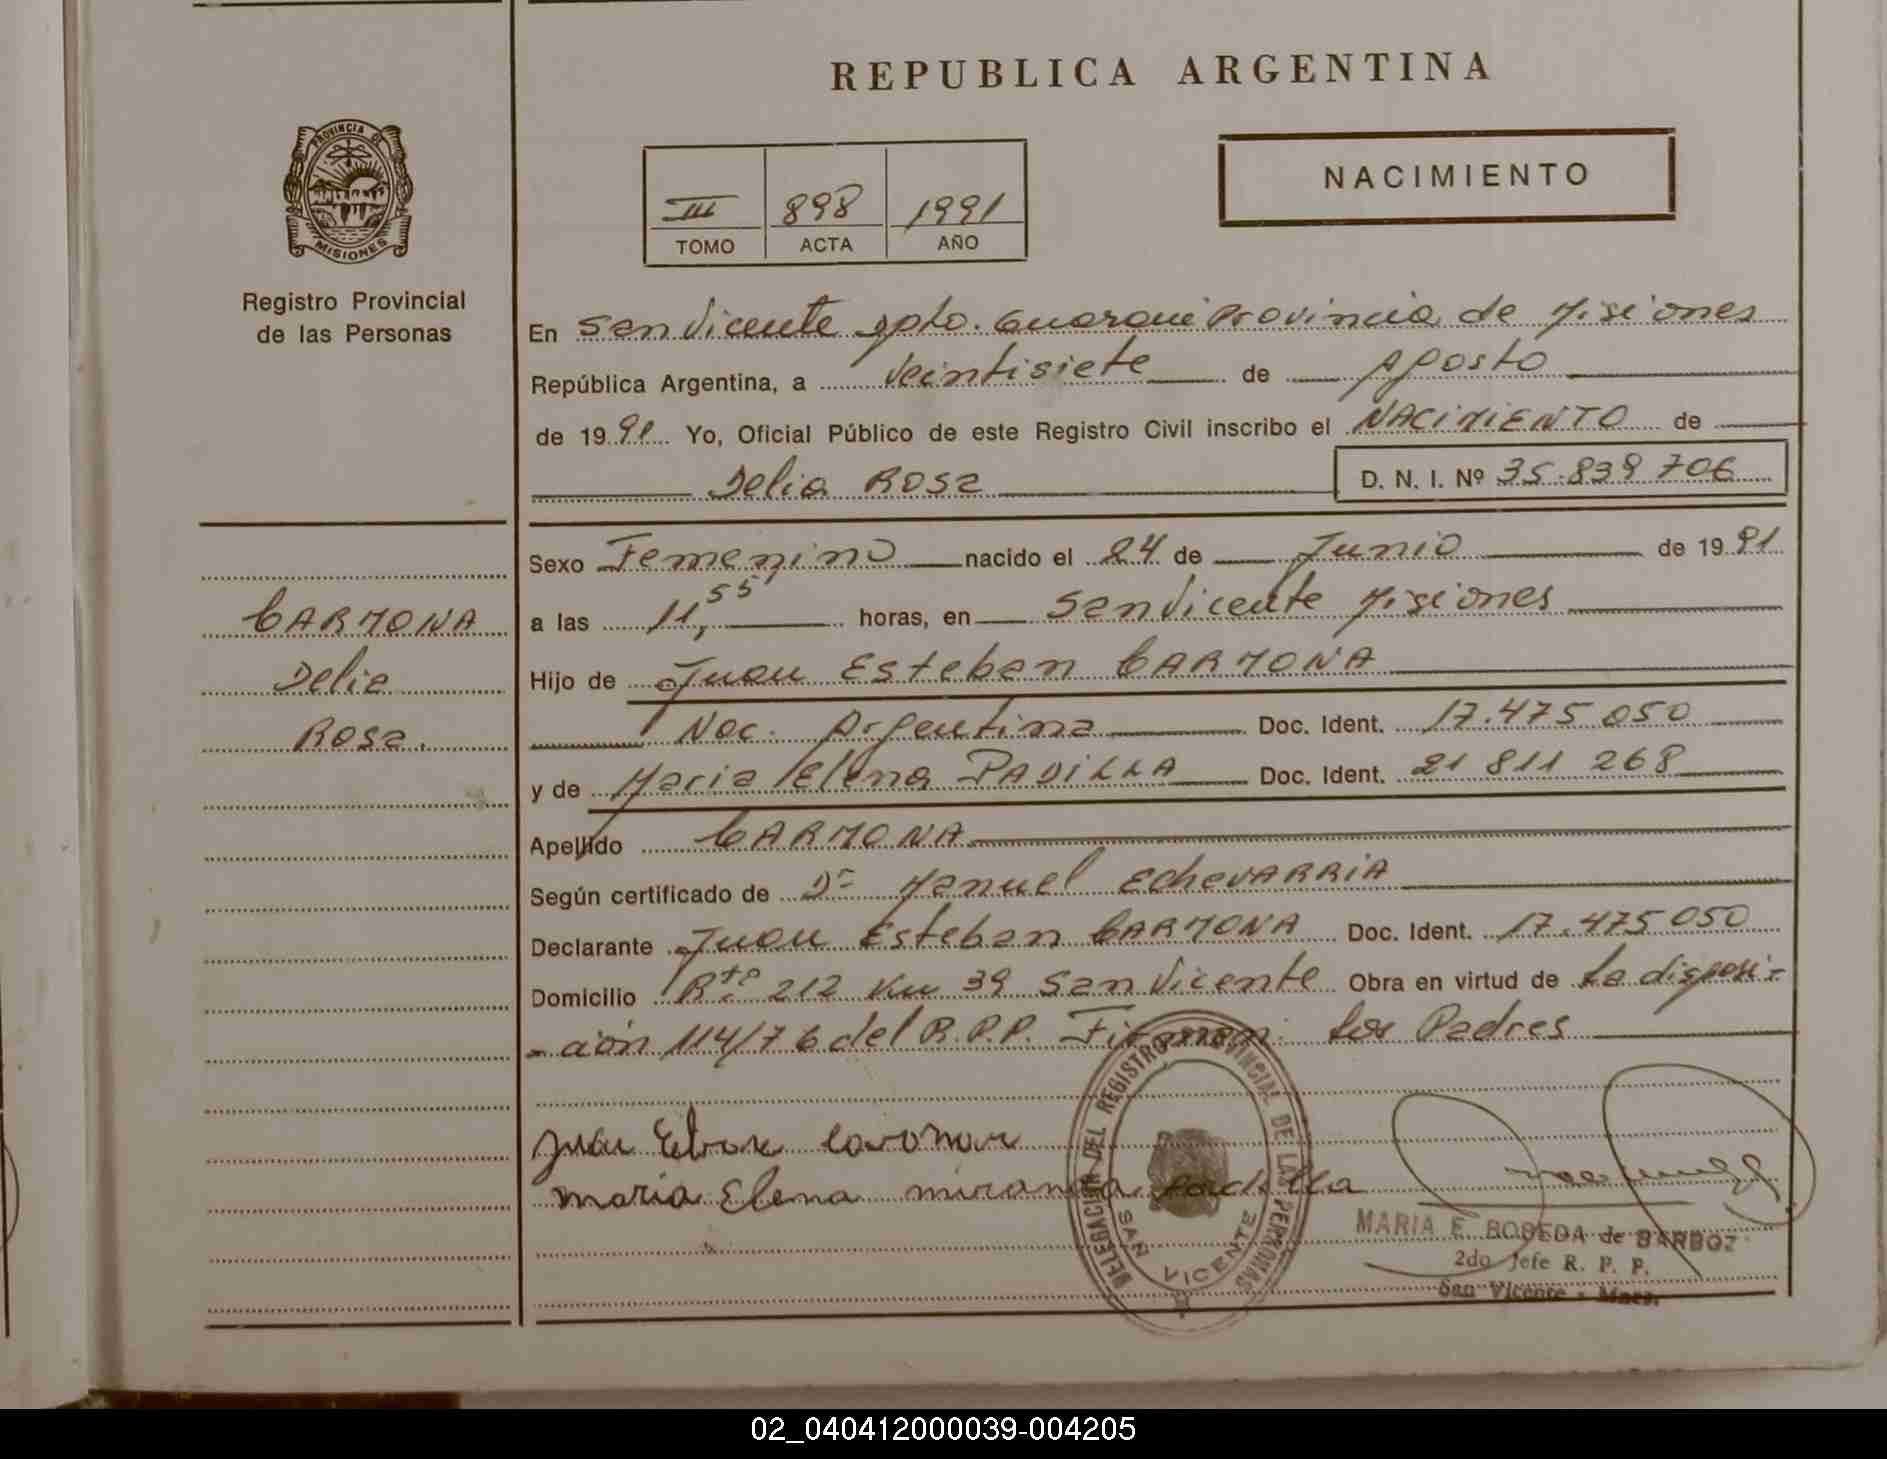 REPUBLICA ARGENTINA
PROVINCIA DE
MISIONES
Registro Provincial
de las Personas
III 898 1991
TOMO ACTA AÑO
NACIMIENTO
En San Vicente Dpto. Guarani Provincia de Misiones
República Argentina, a veintisiete de Agosto
de 1991 Yo, Oficial Público de este Registro Civil inscribo el NACIMIENTO de
Delia Rosa D. N. I. Nº 35.839 706
CARMONA
Delia
Rosa.
Sexo Femenino nacido el 24 de Junio de 1991
a las 11,55 horas, en San Vicente Misiones
Hijo de Juan Esteban CARMONA
Nac. Argentina Doc. Ident. 17.475 050
y de Maria Elena PADILLA Doc. Ident. 21 811 268
Apellido CARMONA
Según certificado de Dr Manuel EcheVARRIA
Declarante Juan Esteban CARMONA Doc. Ident. 17.475 050
Domicilio Rta 212 Km 39 San Vicente Obra en virtud de La disposi-
-ción 114/76 del R.P.P. Firman: Los Padres
DELEGACION DEL REGISTRO PROVINCIAL DE LAS PERSONAS
SAN VICENTE
Juan
maria Elena miranda padilla
MARIA E. BOBEDA de BARBOZ
2do Jefe R. P. P.
San Vicente - Mnes.
02_040412000039-004205